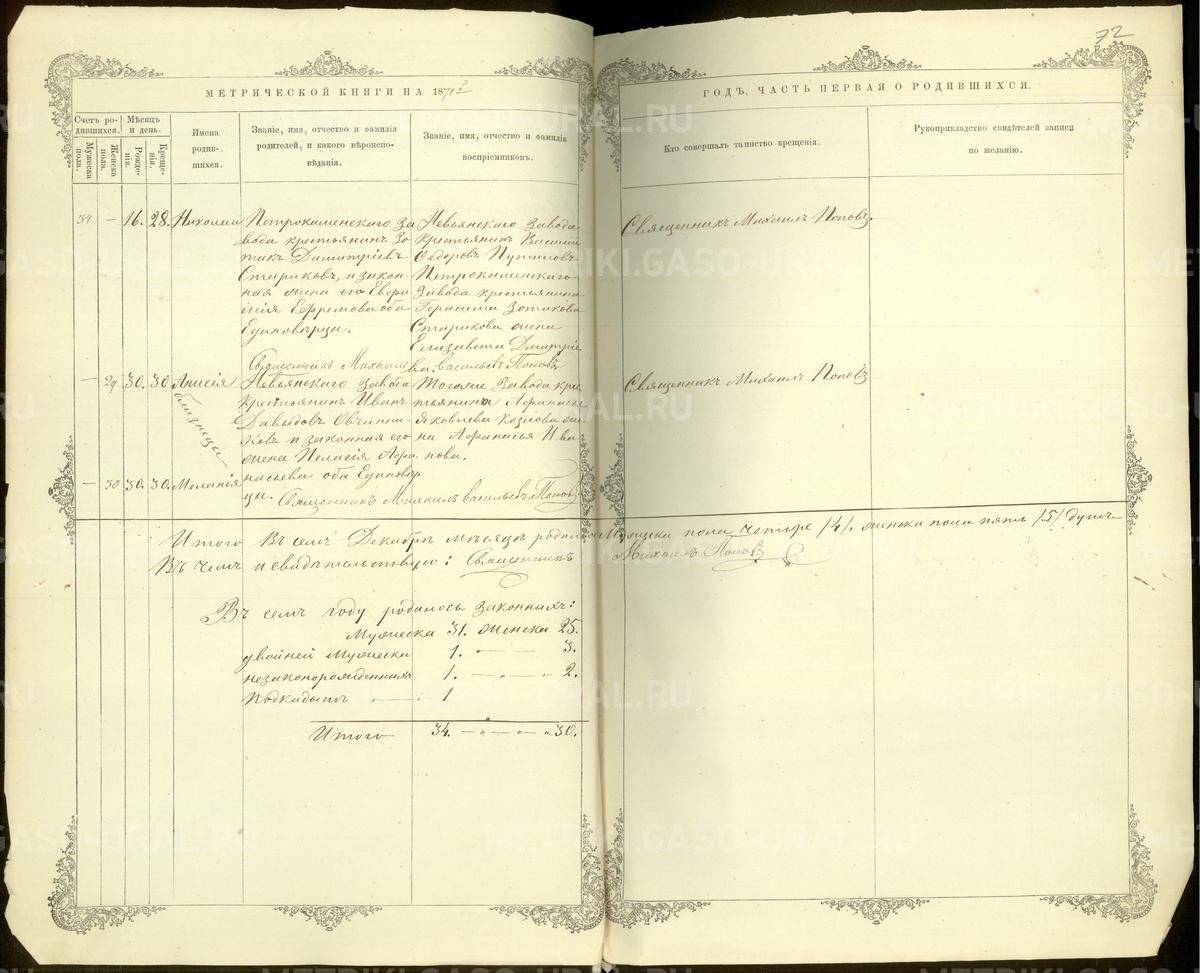 72
МЕТРИЧЕСКОЙ КНИГИ НА 1871
ГОДЪ, ЧАСТЬ ПЕРВАЯ О РОДИВШИХСЯ.
Счетъ ро-
дившихся.
Мужеска пола.
Женска пола.
Мѣсяцъ
и день.
Рожде-
нія.
Креще-
нія.
Имена
родив-
шихся.
Званіе, имя, отчество и фамилія
родителей, и какого вѣроиспо-
вѣданія.
Званіе, имя, отчество и фамилія
воспріемниковъ.
Кто совершалъ таинство крещенія.
Рукоприкладство свидѣтелей записи
по желанію.
34 — 16. 28. Николай
Петрокаменскаго За
вода крестьянинъ Зо
тикъ Димитріевъ
Стариковъ, и закон
ная жена его Евфи
мія Ефремова оба
Единовѣрцы.
Невьянскаго Завода
Крестьянинъ Василій
Ѳедоровъ
Петрокаменскаго
Завода крестьянина
Герасима Зотикова
Старикова жена
Елизавета Дмитріе
ва.
Священникъ Михаилъ Васильевъ Поповъ
Священникъ Михаилъ Поповъ.
— 29 30. 30 Анисія
близнецы
Невьянскаго Завода
крестьянинъ Иванъ
Давыдовъ Овчинни-
ковъ и законная его
жена Пелагія Афа
насьева оба Единовѣр
цы.
Тогоже Завода крес
тьянина Афанасья
Яковлева Козлова же
на Афанасья Ива
нова.
Священникъ Михаилъ Поповъ
— 30 30. 30. Меланія
Священникъ Михаилъ Васильевъ Поповъ
Итого Въ семъ Декабрѣ мѣсяцѣ родилось Мужеска пола четыре /4/, женска пола пять /5/ душъ
Въ чемъ и свидѣтельствую: Священникъ Михаилъ Поповъ
Въ семъ году родилось законныхъ:
Мужеска 31. Женска 25.
двойней Мужеска 1. — 3.
незаконорожденныхъ 1. — „ — 2.
Подкидыш — 1
Итого 34. — „ — „ 30.
METRIKI.GASO-URAL.RU